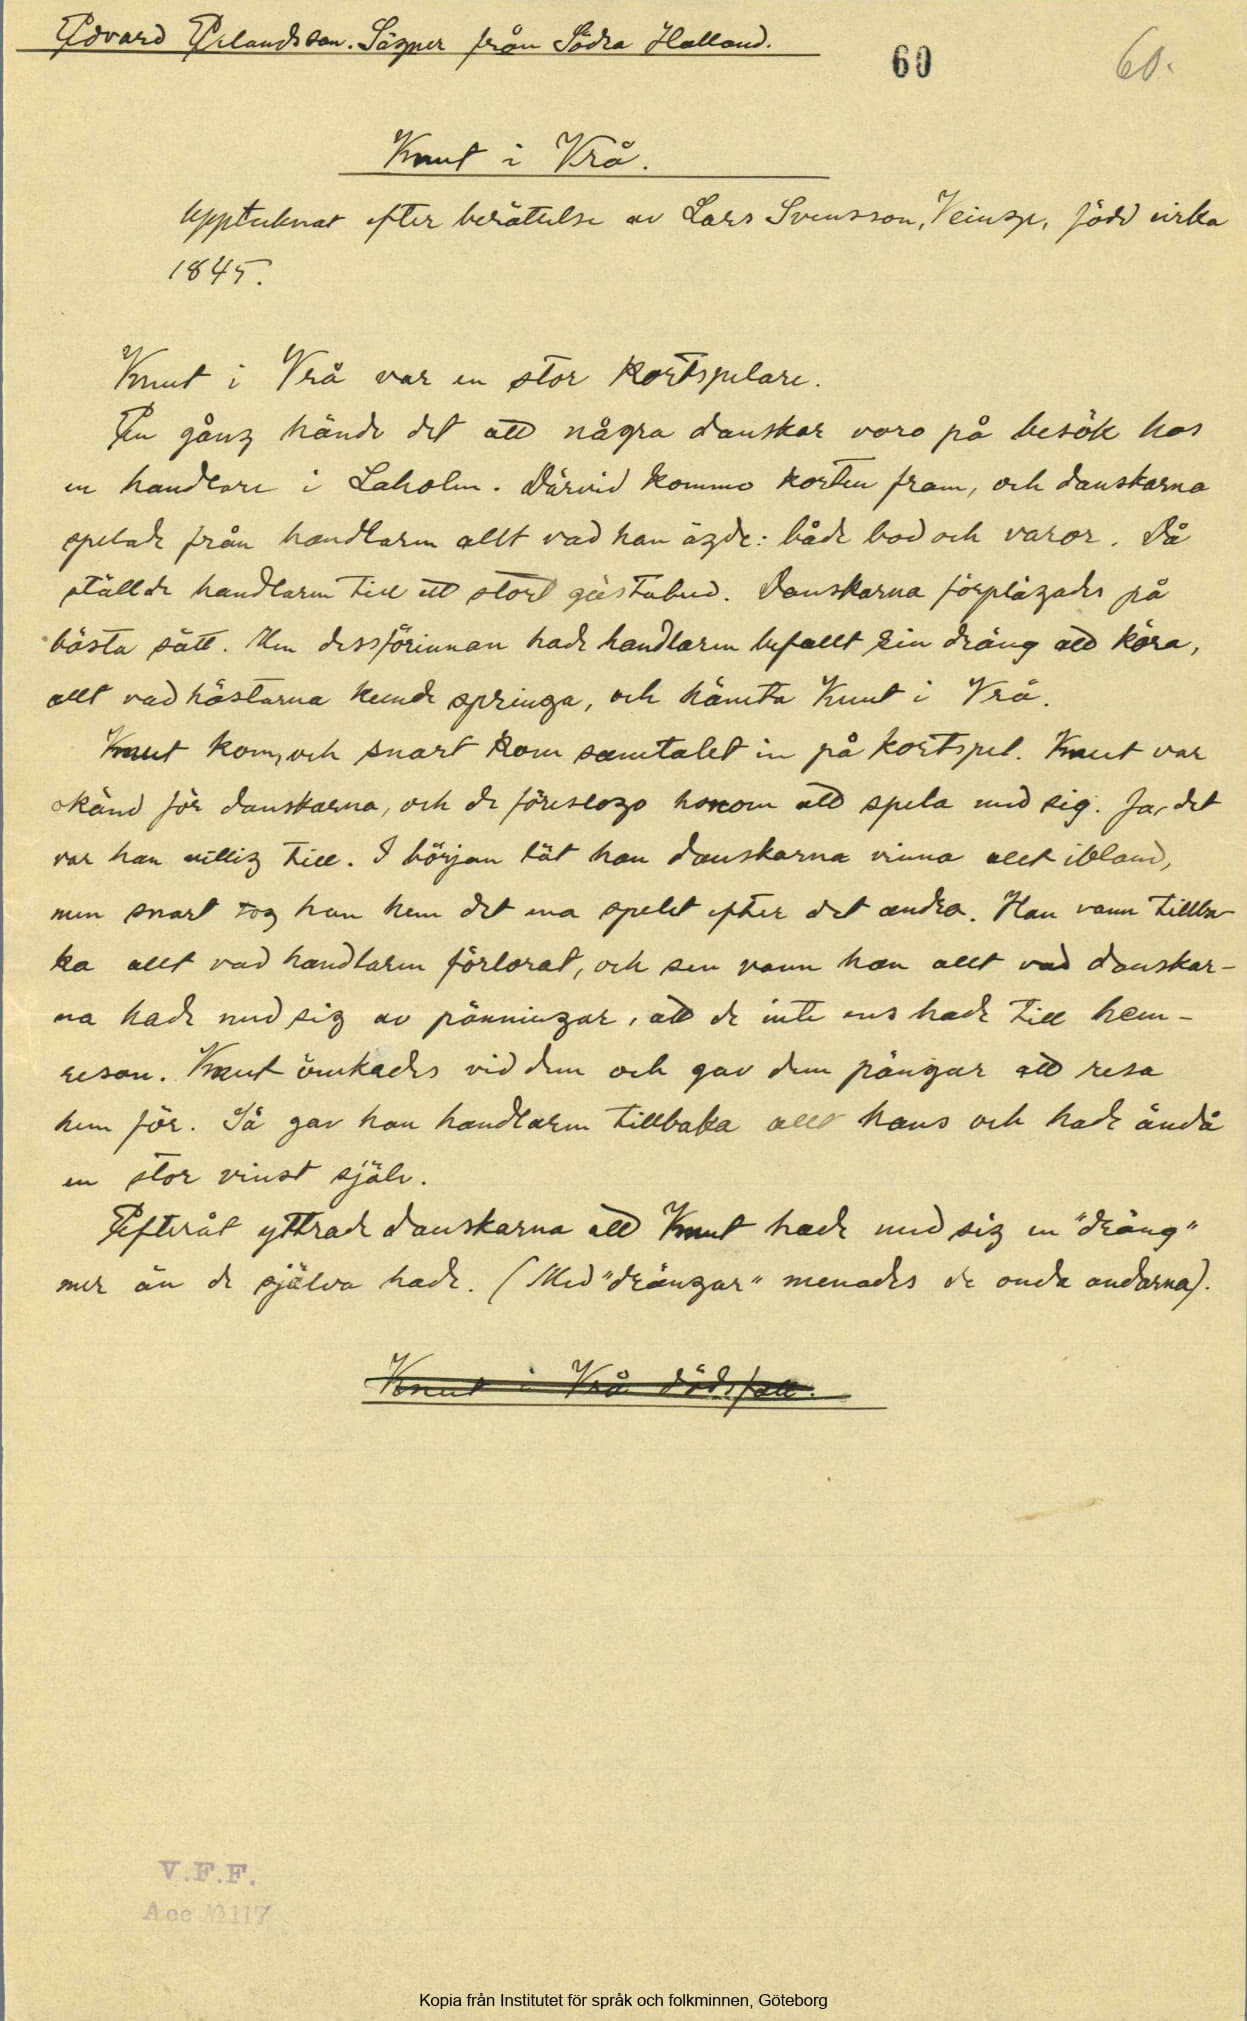 Edvard Erlandsson. Sägner från Södra Halland.
60 60.
Knut i Vrå.
Upptecknat efter berättelse av Lars Svensson, Veinge, född cirka
1845.
Knut i Vrå var en stor kortspelare.
En gång hände det att några danskar voro på besök hos
en handlare i Laholm. Därvid kommo korten fram, och danskarna
spelade från handlaren allt vad han ägde: både bod och varor. Då
ställde handlaren till ett stort gästabud. Danskarna förplägades på
bästa sätt. Men dessförinnan hade handlaren befallt sin dräng att köra,
allt vad hästarna kunde springa, och hämta Knut i Vrå.
Knut kom, och snart kom samtalet in på kortspel. Knut var
okänd för danskarna, och de föreslogo honom att spela med sig. Ja, det
var han villig till. I början lät han danskarna vinna allt ibland,
men snart tog han hem det ena spelet efter det andra. Han vann tillba-
ka allt vad handlaren förlorat, och sen vann han allt vad danskar-
na hade med sig av pänningar, att de inte ens hade till hem-
resan. Knut ömkades vid dem och gav dem pängar att resa
hem för. Så gav han handlaren tillbaka allt hans och hade ändå
en stor vinst själv.
Efteråt yttrade danskarna att Knut hade med sig en "dräng"
mer än de själva hade. (Med "drängar" menades de onda andarna).
Knut i Vrå dödsfall.
V.F.F.
Acc № 117
Kopia från Institutet för språk och folkminnen, Göteborg